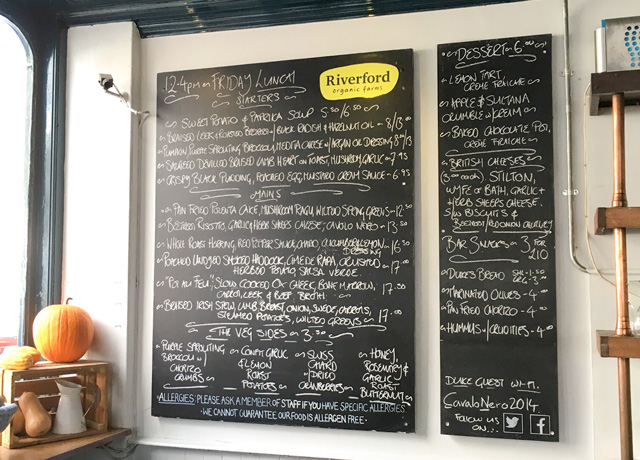 12-4pm FRIDAY LUNCH
Riverford
organic farms
STARTERS
SWEET POTATO & PAPRIKA SOUP 5.50/6.50
BRAISED LEEK & POTATO W/ BLACK & HAZELNUT OIL - 8/13
PUMPKIN, PURPLE SPROUTING BROCCOLI, CHEESE W/ ARGAN OIL DRESSING 8.5/13
DEVILLED BRAISED LAMB HEART ON TOAST, MUSHROOM, GARLIC - 7.95
CRISPY BLACK PUDDING, POACHED EGG, MUSTARD CREAM SAUCE - 6.95
MAINS
PAN FRIED POLENTA CAKE, MUSHROOM RAGU, WILTED SPRING GREENS - 12.50
BEETROOT RISOTTO, GARLIC & HERB SHEEPS CHEESE, CAVOLO NERO - 13.50
WHOLE ROAST HERRING, RED PEPPER SAUCE, CUCUMBER & LEMON DRESSING - 16.50
POACHED UNDYED SMOKED HADDOCK, CIME DE RAPA, CRUSHED - 17.00
HERBED POTATO SALSA VERDE
"POT AU FEU", SLOW COOKED OX CHEEK, BONE MARROW, 17.50
CARROT, LEEK & BEEF BROTH
BRAISED IRISH STEW, LAMB BREAST, ONION, SWEDE, CARROTS,
STEAMED POTATOES, WILTED GREENS - 17.00
THE VEG SIDES - 3.50
PURPLE SPROUTING
BROCCOLI W/
CHORIZO
CRUMBS
CONFIT GARLIC
& LEMON
ROAST
POTATOES
SWISS
CHARD
W/ DRIED
CRANBERRIES
HONEY,
ROSEMARY &
GARLIC
ROAST
BUTTERNUT
ALLERGIES: PLEASE ASK A MEMBER OF STAFF IF YOU HAVE SPECIFIC ALLERGIES
· WE CANNOT GUARANTEE OUR FOOD IS ALLERGEN FREE ·
DESSERT - 6.00
LEMON TART,
CRÈME FRAÎCHE
APPLE & SULTANA
CRUMBLE W/ CREAM
BAKED CHOCOLATE POT,
CRÈME FRAÎCHE
BRITISH CHEESES
(3.00 each), STILTON,
WYFE OF BATH, GARLIC &
HERB SHEEPS CHEESE.
BISCUITS &
BEETROOT CHUTNEY
BAR SNACKS - 3 FOR
£10
BREAD SML-1.50
LRG-3.00
MARINATED OLIVES - 4.00
PAN FRIED CHORIZO - 4.00
HUMMUS W/ CRUDITIES - 4.00
GUEST WI-FI.
CavoloNero2014
FOLLOW US
ON...
f